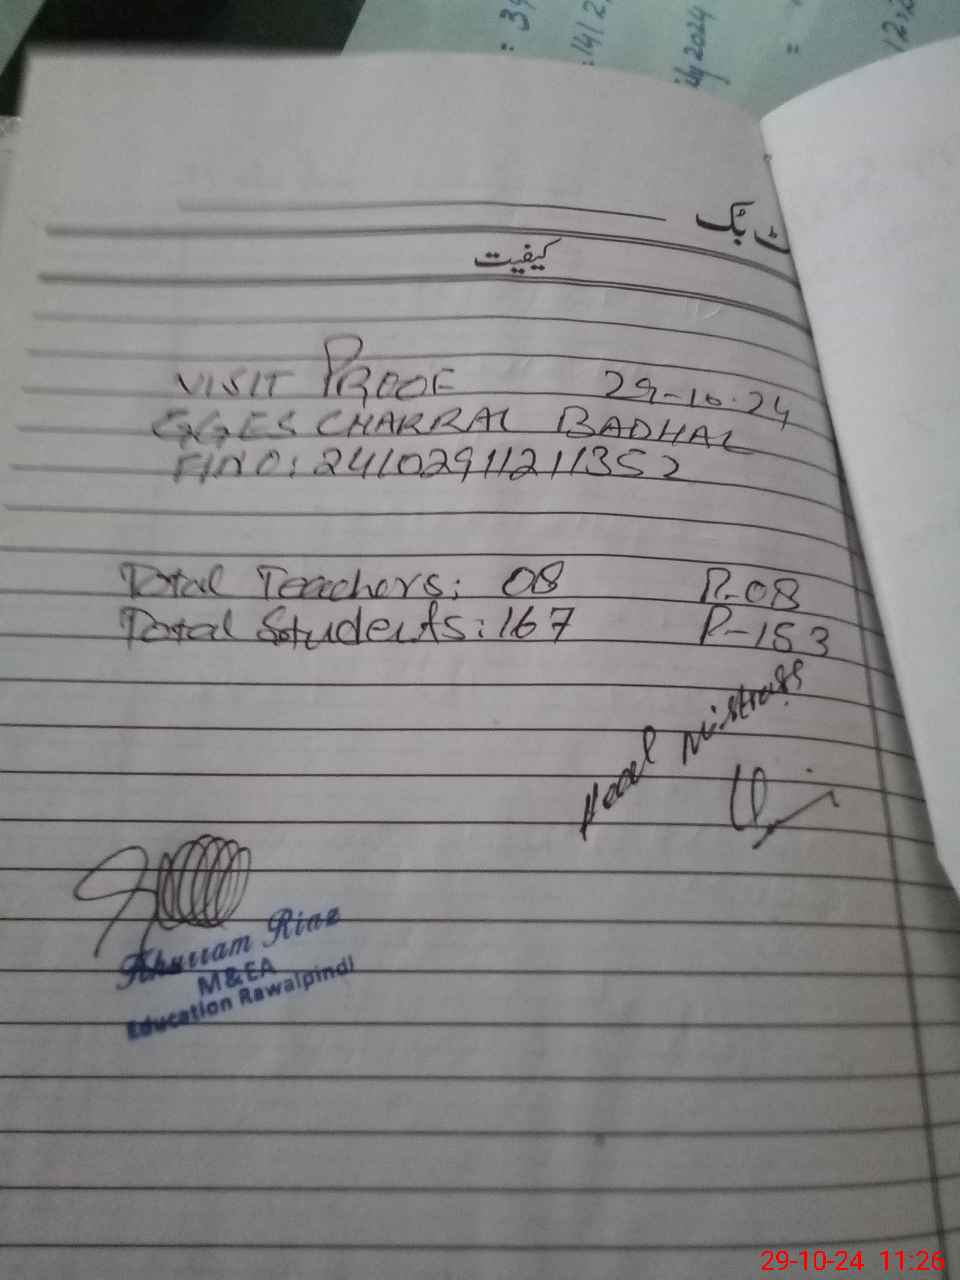 : 1412
July 2024
=
ٹ بک
کیفیت
VISIT PROOF 29-10-24
GGES CHAKRAL BADHAL
FINO: 24102911211352
Total Teachers: 08 P-08
Total Students: 167 P-153
Head Mistress
Khurram Riaz
M&EA
Education Rawalpindi
29-10-24 11:26